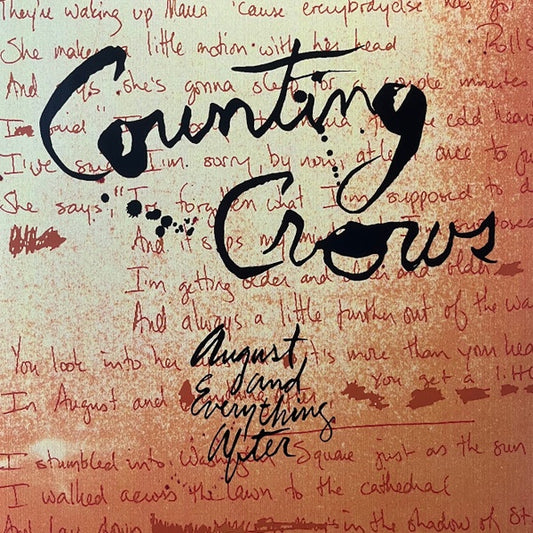 They're waking up Maria 'cause everybody else has got
She makes a little motion with her head Rolls
And says she's gonna sleep for a couple minutes
Counting
I said I to cold
I've said I'm sorry by now, at least once to ju
She says, "I've forgotten what I'm supposed to d
Crows
And it slips my I'm supposed
I'm getting older and older and older
And always a little further out of the wa
You look into her it is more than your hea
August
and
Everything
After
In August and after You get a litt
I stumbled into Washington Square just as the sun
I walked across the lawn to the cathedral
And lay down in the shadow of St